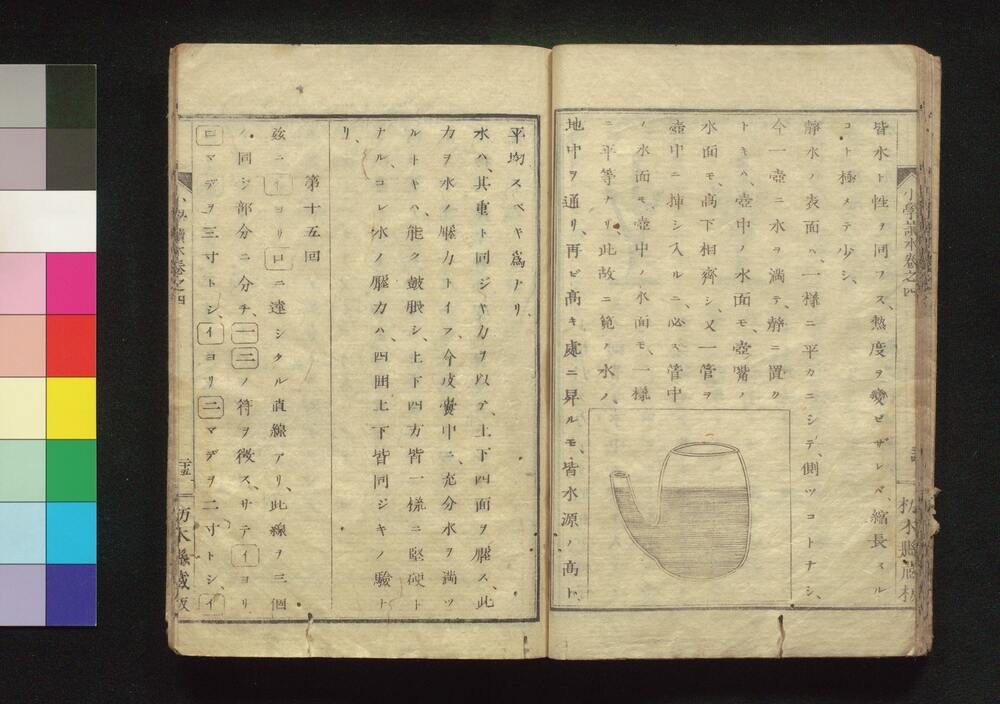 皆水ト性ヲ同フス、熱度ヲ變ビザレバ、縮長スル
コト極メテ少シ、
靜水ノ表面ハ、一樣ニ平カニシテ、側ツコトナシ、
今一壺ニ水ヲ滿テ、靜ニ置ク
トキハ、壺中ノ水面モ、壺嘴ノ
水面モ、高下相齊シ、又一管ヲ
壺中ニ挿シ入ルニ、必ス管中
ノ水面モ、壺中ノ水面モ、一樣
ニ平等ナリ、此故ニ筧ノ水ノ、
地中ヲ通リ、再ビ高キ處ニ昇ルモ、皆水源ノ高ト、
平均スベキ爲ナリ、
水ハ、其重ト同ジキ力ヲ以テ、上下四面ヲ壓ス、此
力ヲ水ノ壓力トイフ、今皮嚢中ニ、充分水ヲ滿ツ
ルトキハ、能ク皷脹シ、上下四方皆一樣ニ堅硬ト
ナル、コレ水ノ壓力ハ、四囲上下皆同ジキノ驗ナ
リ、
第十五回
玆ニイヨリロニ達シタル直線アリ、此線ヲ三個
ノ同ジ部分ニ分チ、一二ノ符ヲ徴ス、サテイヨリ
ロマデヲ三寸トシ、イヨリ二マデヲ二寸トシ、イ
小學讀本卷之四
小學讀本卷之四
二十五